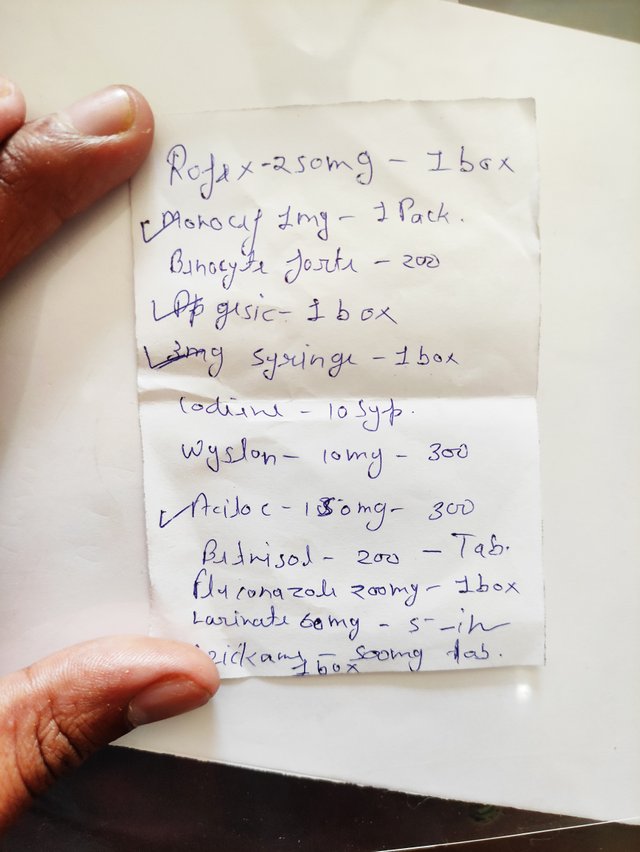 Rofex-250mg - 1 box
Monocef 1mg - 1 Pack.
Binocyte forte - 200
gesic - 1 box
3mg syringe - 1 box
Codiene - 10 Syp.
Wyslon - 10mg - 300
Aciloc - 150mg - 300
Betnisol - 200 - Tab.
Fluconazole 200mg - 1box
Larinate 60mg - 5 - in
- 500mg tab.
1 box